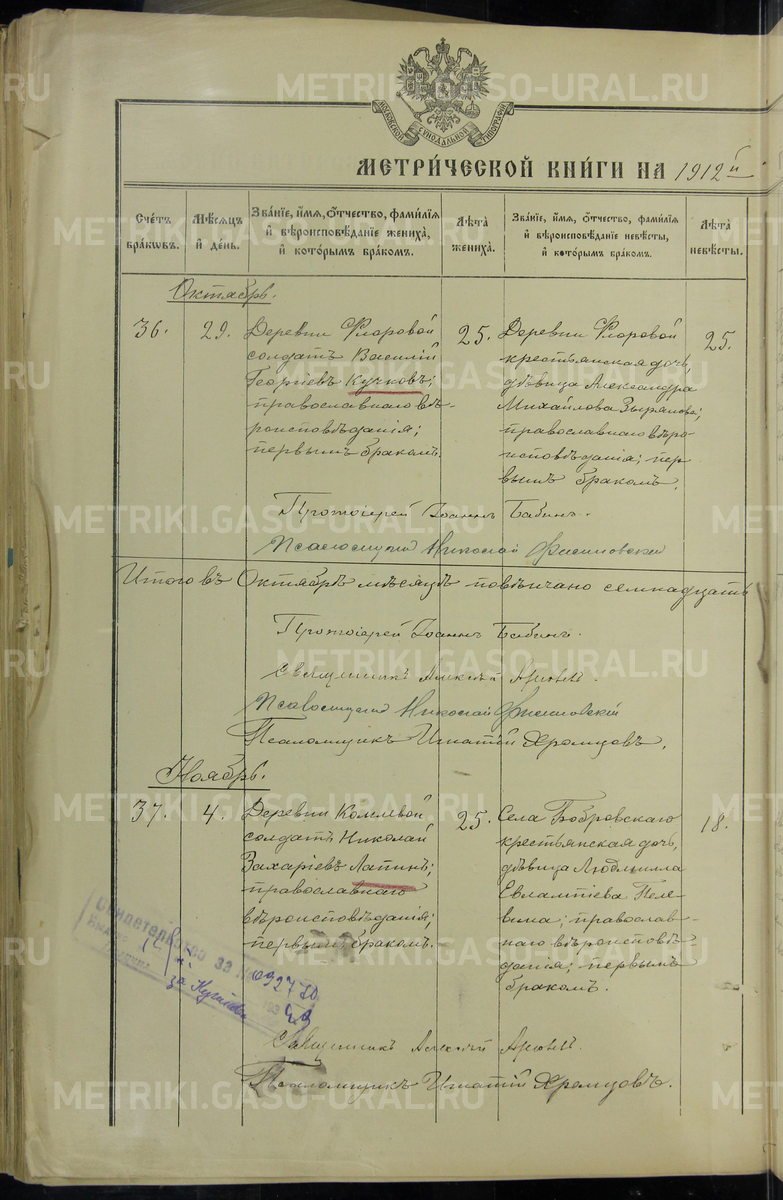 МОСКОВСКОЙ СѴНОДАЛЬНОЙ ТИПОГРАФІИ
МЕТРИ́ЧЕСКОЙ КНИ́ГИ НА 1912й
Сче́тъ бра́ковъ.
Мѣ́сяцъ и҆ де́нь.
Зва́нїе, и҆́мя, ѻ҆́тчество, фами́лїя и҆ вѣроисповѣ́данїе жениха̀, и҆ кото́рымъ бра́комъ.
Лѣ́та жениха̀.
Зва́нїе, и҆́мя, ѻ҆́тчество, фами́лїя и҆ вѣроисповѣ́данїе невѣ́сты, и҆ кото́рымъ бра́комъ.
Лѣ́та невѣ́сты.
Октябрь.
36.
29.
Деревни Фларовой
солдатъ Василій
Георгіевъ Кучковъ;
православнаго вѣ-
роисповѣданія;
первымъ бракомъ.
25.
Деревни Фларовой
крестьянская дочь,
дѣвица Александра
Михайлова Зырянова;
православнаго вѣро-
исповѣданія; пер
вымъ бракомъ.
25.
Протоіерей Іоаннъ Бабинъ.
Псаломщикъ Николай
Итого въ Октябрѣ мѣсяцѣ повѣнчано семнадцать
Протоіерей Іоаннъ Бабинъ.
Священникъ Алексѣй
Псаломщикъ Николай
Псаломщикъ Игнатій Храмцовъ.
Ноябрь.
37.
4.
Деревни Комлевой
солдатъ Николай
Захаріевъ Лапинъ;
православнаго
вѣроисповѣданія;
первымъ бракомъ.
25.
Села Бобровскаго
крестьянская дочь,
дѣвица Людмилла
Евлампіева Пеле-
вина; православ-
наго вѣроисповѣ-
данія; первымъ
бракомъ.
18.
Свидетельство за №
092720
Священникъ Алексѣй
Псаломщикъ Игнатій Храмцовъ.
METRIKI.GASO-URAL.RU